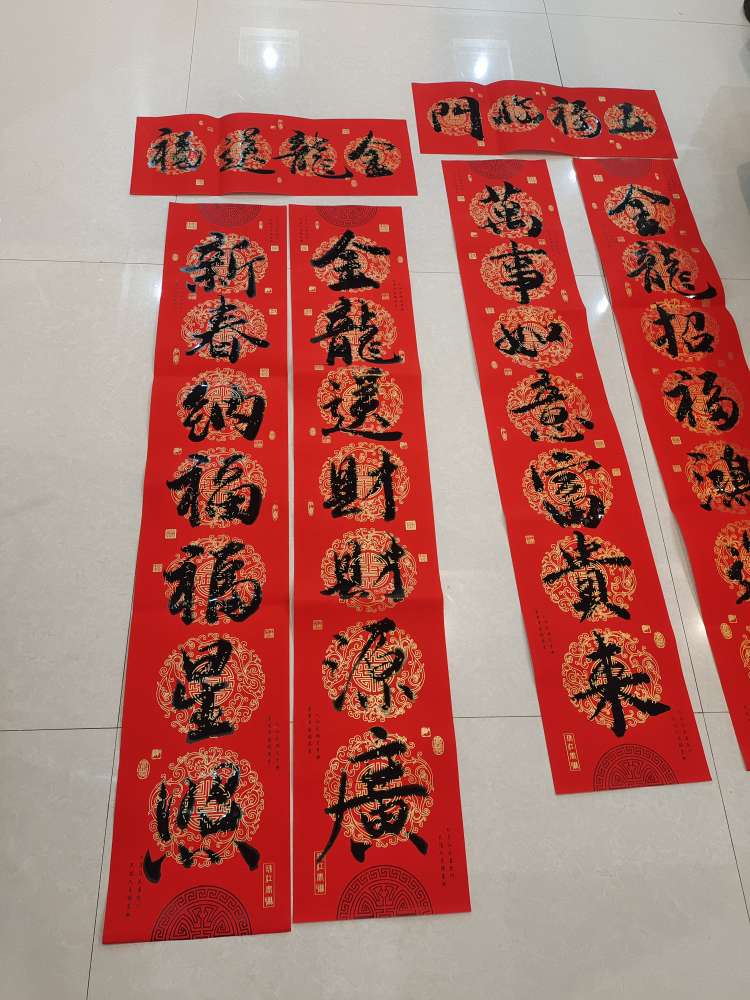 金龍送福
金龍送財財源廣
新春納福福星照
五福臨門
金龍招福鴻
萬事如意富貴來